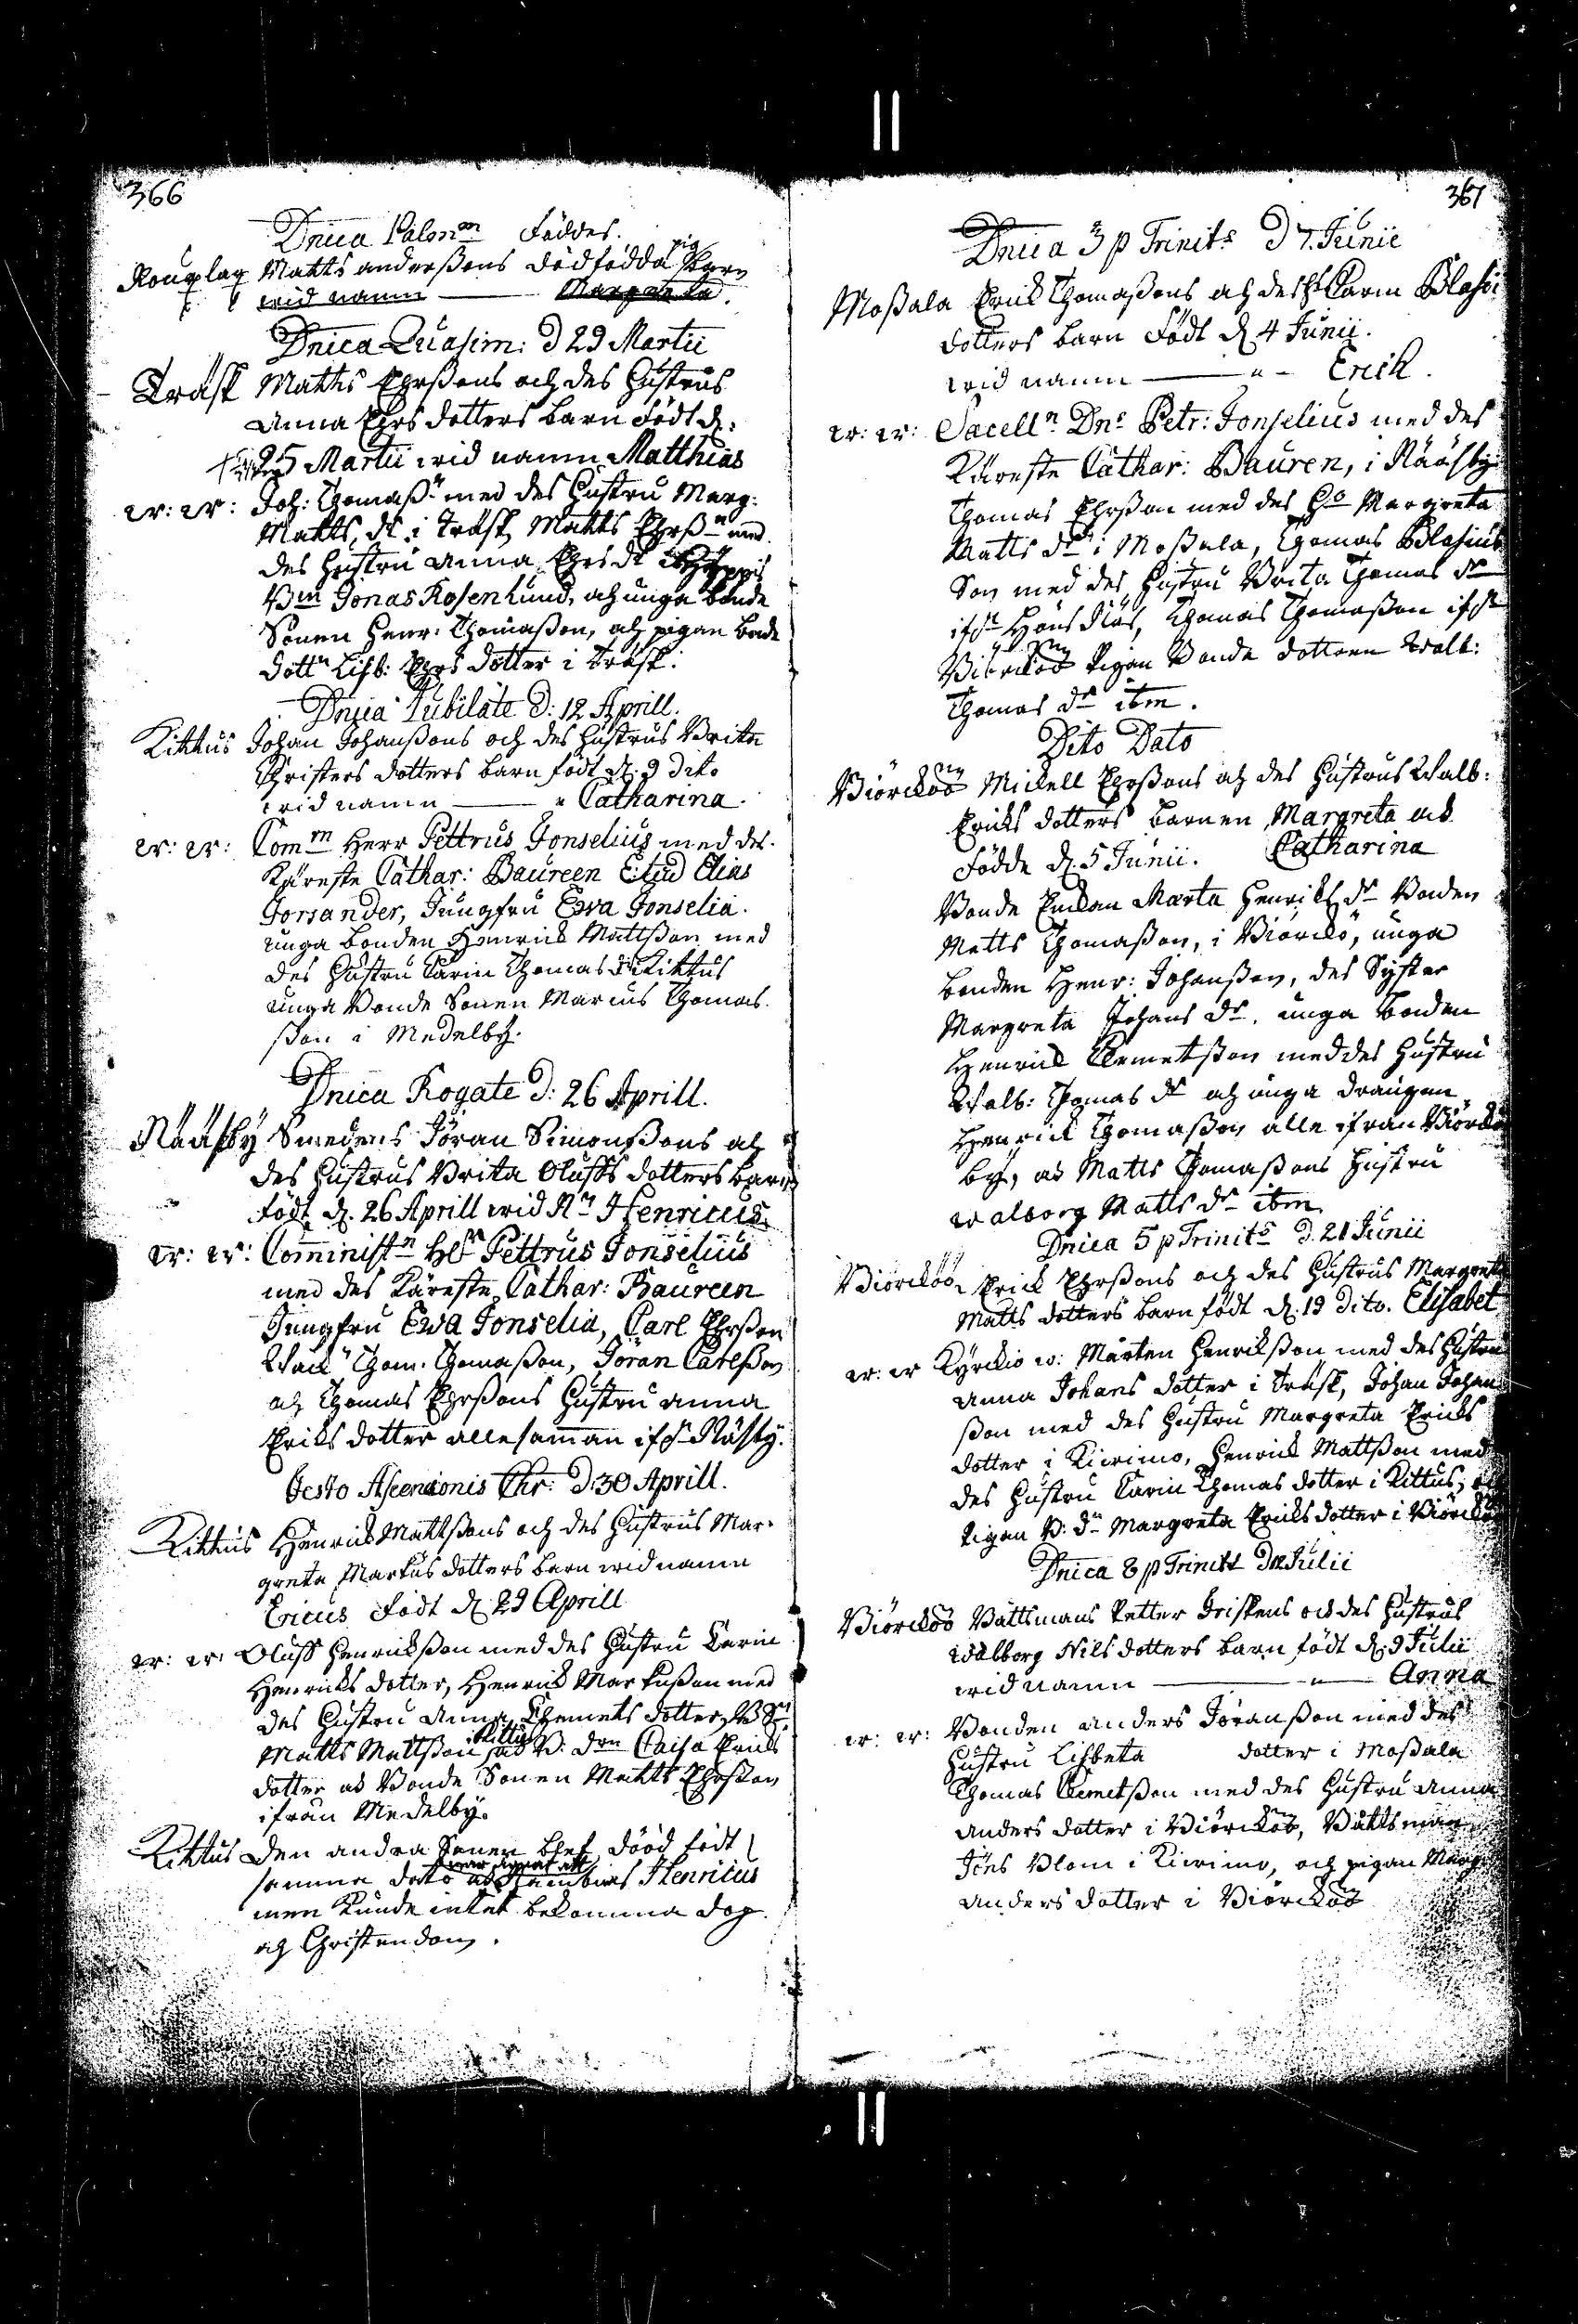 366
Dnica Palm:m Föddes.
Matts anderßons dödfödda pig barn
wid namn Margreta.
Dnica Quasim: d 29 Martii
Träsk Matts Ehrßons och des Hustrus
Anna Ehrs dotters barn Födt d:
25 Martii wid namn Matthias
w: w: Joh: Thomaß:n med des Hustru Marg:
Matts dr i Träsk, Matts Ehrß:n med
des Hustru Anna Ehrs dr
Jonas Rosenlund, och unga bonde
Sonen Henr: Thomaßon, och pigan bonde
dott:n Lisb: Ehrs dotter i Träsk.
Dnica Jubilate d: 12 Aprill.
Kittus Johan Johanßons och des Hustrus Brita
Christers dotters barn födt d: 9 dito
wid namn " Catharina.
w: w: Com:m Herr Pettrus Jonselius med des
Käreste Cathar: Baureen Stud Elias
Gorsander, Jungfru Ewa Jonselia.
unga bonden Henrick Mattßon med
des Hustru Carin Thomas dr i Kittus
unga Bonde Sonen Marcus Thomas
ßon i Medelby.
Dnica Rogate d: 26 Aprill.
Näåsby Smedens Jöran Simonßons och
des Hustrus Brita Oluffs dotters barn
födt d. 26 Aprill wid N:n Henricus
w: w: Comminist:n He:r Pettrus Jonselius
med des Käreste Cathar: Baureen
Jungfru Ewa Jonselia, Carl Ehrßon
Thom. Thomaßon, Jöran Carlßon
och Thomas Ehrßons Hustru anna
Eriks dotter allesamman ifr: Näsby.
Festo Ascensionis Chr: d: 30 Aprill.
Kittus Henrick Mattßons och des Hustrus Mar-
greta Markus dotters barn wid namn
Ericus födt d: 29 Aprill
w: w: Oluff Henrickßon med des Hustru Carin
Henricks dotter, Henrick Markußon med
des Hustru Anna Clemets dotter,
Matts Mattßon i Kittus och B: d:ren Caisa Ericks
dotter och Bonde Sonen Matts Ehrßon
ifrån Medelby.
Kittus den andra Sonen blef dööd födt
samma dato nembnes Henricus
men kunde intet bekomma dop
och Christendom.
367
Dnica 3 p Trinit:s d 7. Junii
Moßala Erick Thomaßons och des H: Carin Blasii
dotters barn Födt d. 4 Junii.
wid namn " Erich.
w: w: Sacell:n Dn:s Petr: Jonselius med des
Käreste Cathar: Bauren, i Näåsby
Thomas Ehrßon med des H:o Margreta
Matts dr i Moßala, Thomas Blasius
Son med des Hustru Brita Thomas dr
ifr: Hönsnäs, Thomas Thomaßon ifr:
Biörcköö Pigan Bonde dottren Walb:
Thomas dr ibm.
Dito Dato
Biörcköö Mickell Ehrßons och des Hustrus Walb:
Ericks dotters barnen Margreta och
Födde d. 5 Junii. Catharina
Bonde Enckan Marta Henricks dr Bonden
Matts Thomaßon, i Biörckö, unga
bonden Henr: Johanßon, des Syster
Margreta Johans dr. unga bonden
Henrick Clemetßon med des Hustru
Walb: Thomas dr och unga drängen
Henrick Thomaßon alle ifrån Biörckö
by, och Matts Thomaßons Hustru
walborg Matts dr ibm.
Dnica 5 p Trinit:s d. 21 Junii
Biörcköö Erick Ehrßons och des Hustrus Margreta
Matts dotters barn födt d. 19 dito. Elisabet
w: w Kyrckio w: Mårten Henrickßon med des Hustru
Anna Johans dotter i Träsk, Johan Johan
ßon med des Hustru Margreta Ericks
dotter i Kiwimo, Henrick Mattßon med
des Hustru Carin Thomas dotter i Kittus, och
Pigan B: d:n Margreta Ericks dotter i Biörckö
Dnica 8 p Trinit: d 12 Julii
Biörcköö Båttsmans Petter Grispens och des Hustrus
Walborg Nils dotters barn födt d. 9 Julii
wid namn " Anna
w: w: Bonden anders Jöranßon med des
Hustru Lisbeta dotter i Moßala
Thomas Clemetßon med des Hustru Anna
Anders dotter i Biörcköö, Båttsman
Jöns Blom i Kiwimo, och pigan Marg
Anders dotter i Biörcköö